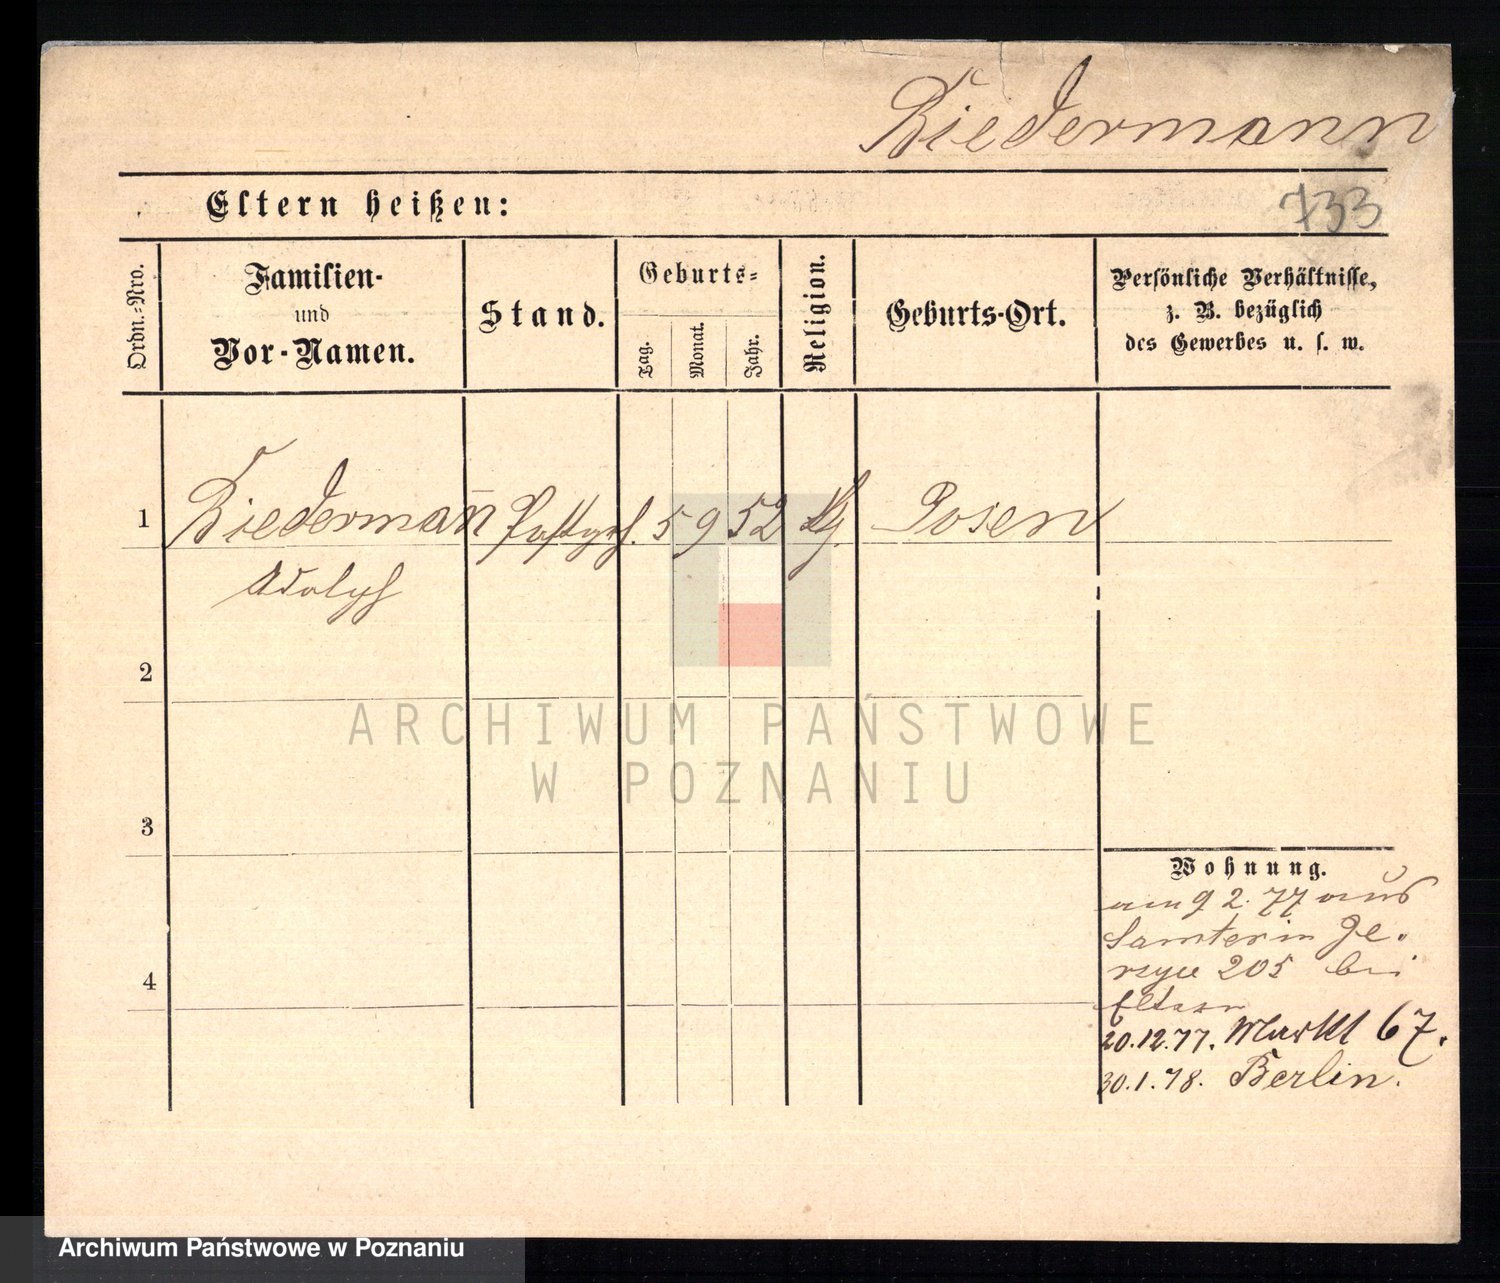 Biedermann
Eltern heißen:
733
Ordn.-Nro.
Familien-
und
Vor-Namen.
Stand.
Geburts-
Tag.
Monat.
Jahr.
Religion.
Geburts-Ort.
Persönliche Verhältnisse,
z. B. bezüglich
des Gewerbes u. s. w.
1 Biederman̅n 5 9 52 Posen
Adolph
2
3
4
Wohnung.
am 9 2. 77 aus
Samter in Je-
rsyce 205 bei
Eltern
20.12.77. Markt 67.
30.1.78. Berlin.
ARCHIWUM PAŃSTWOWE
W POZNANIU
Archiwum Państwowe w Poznaniu